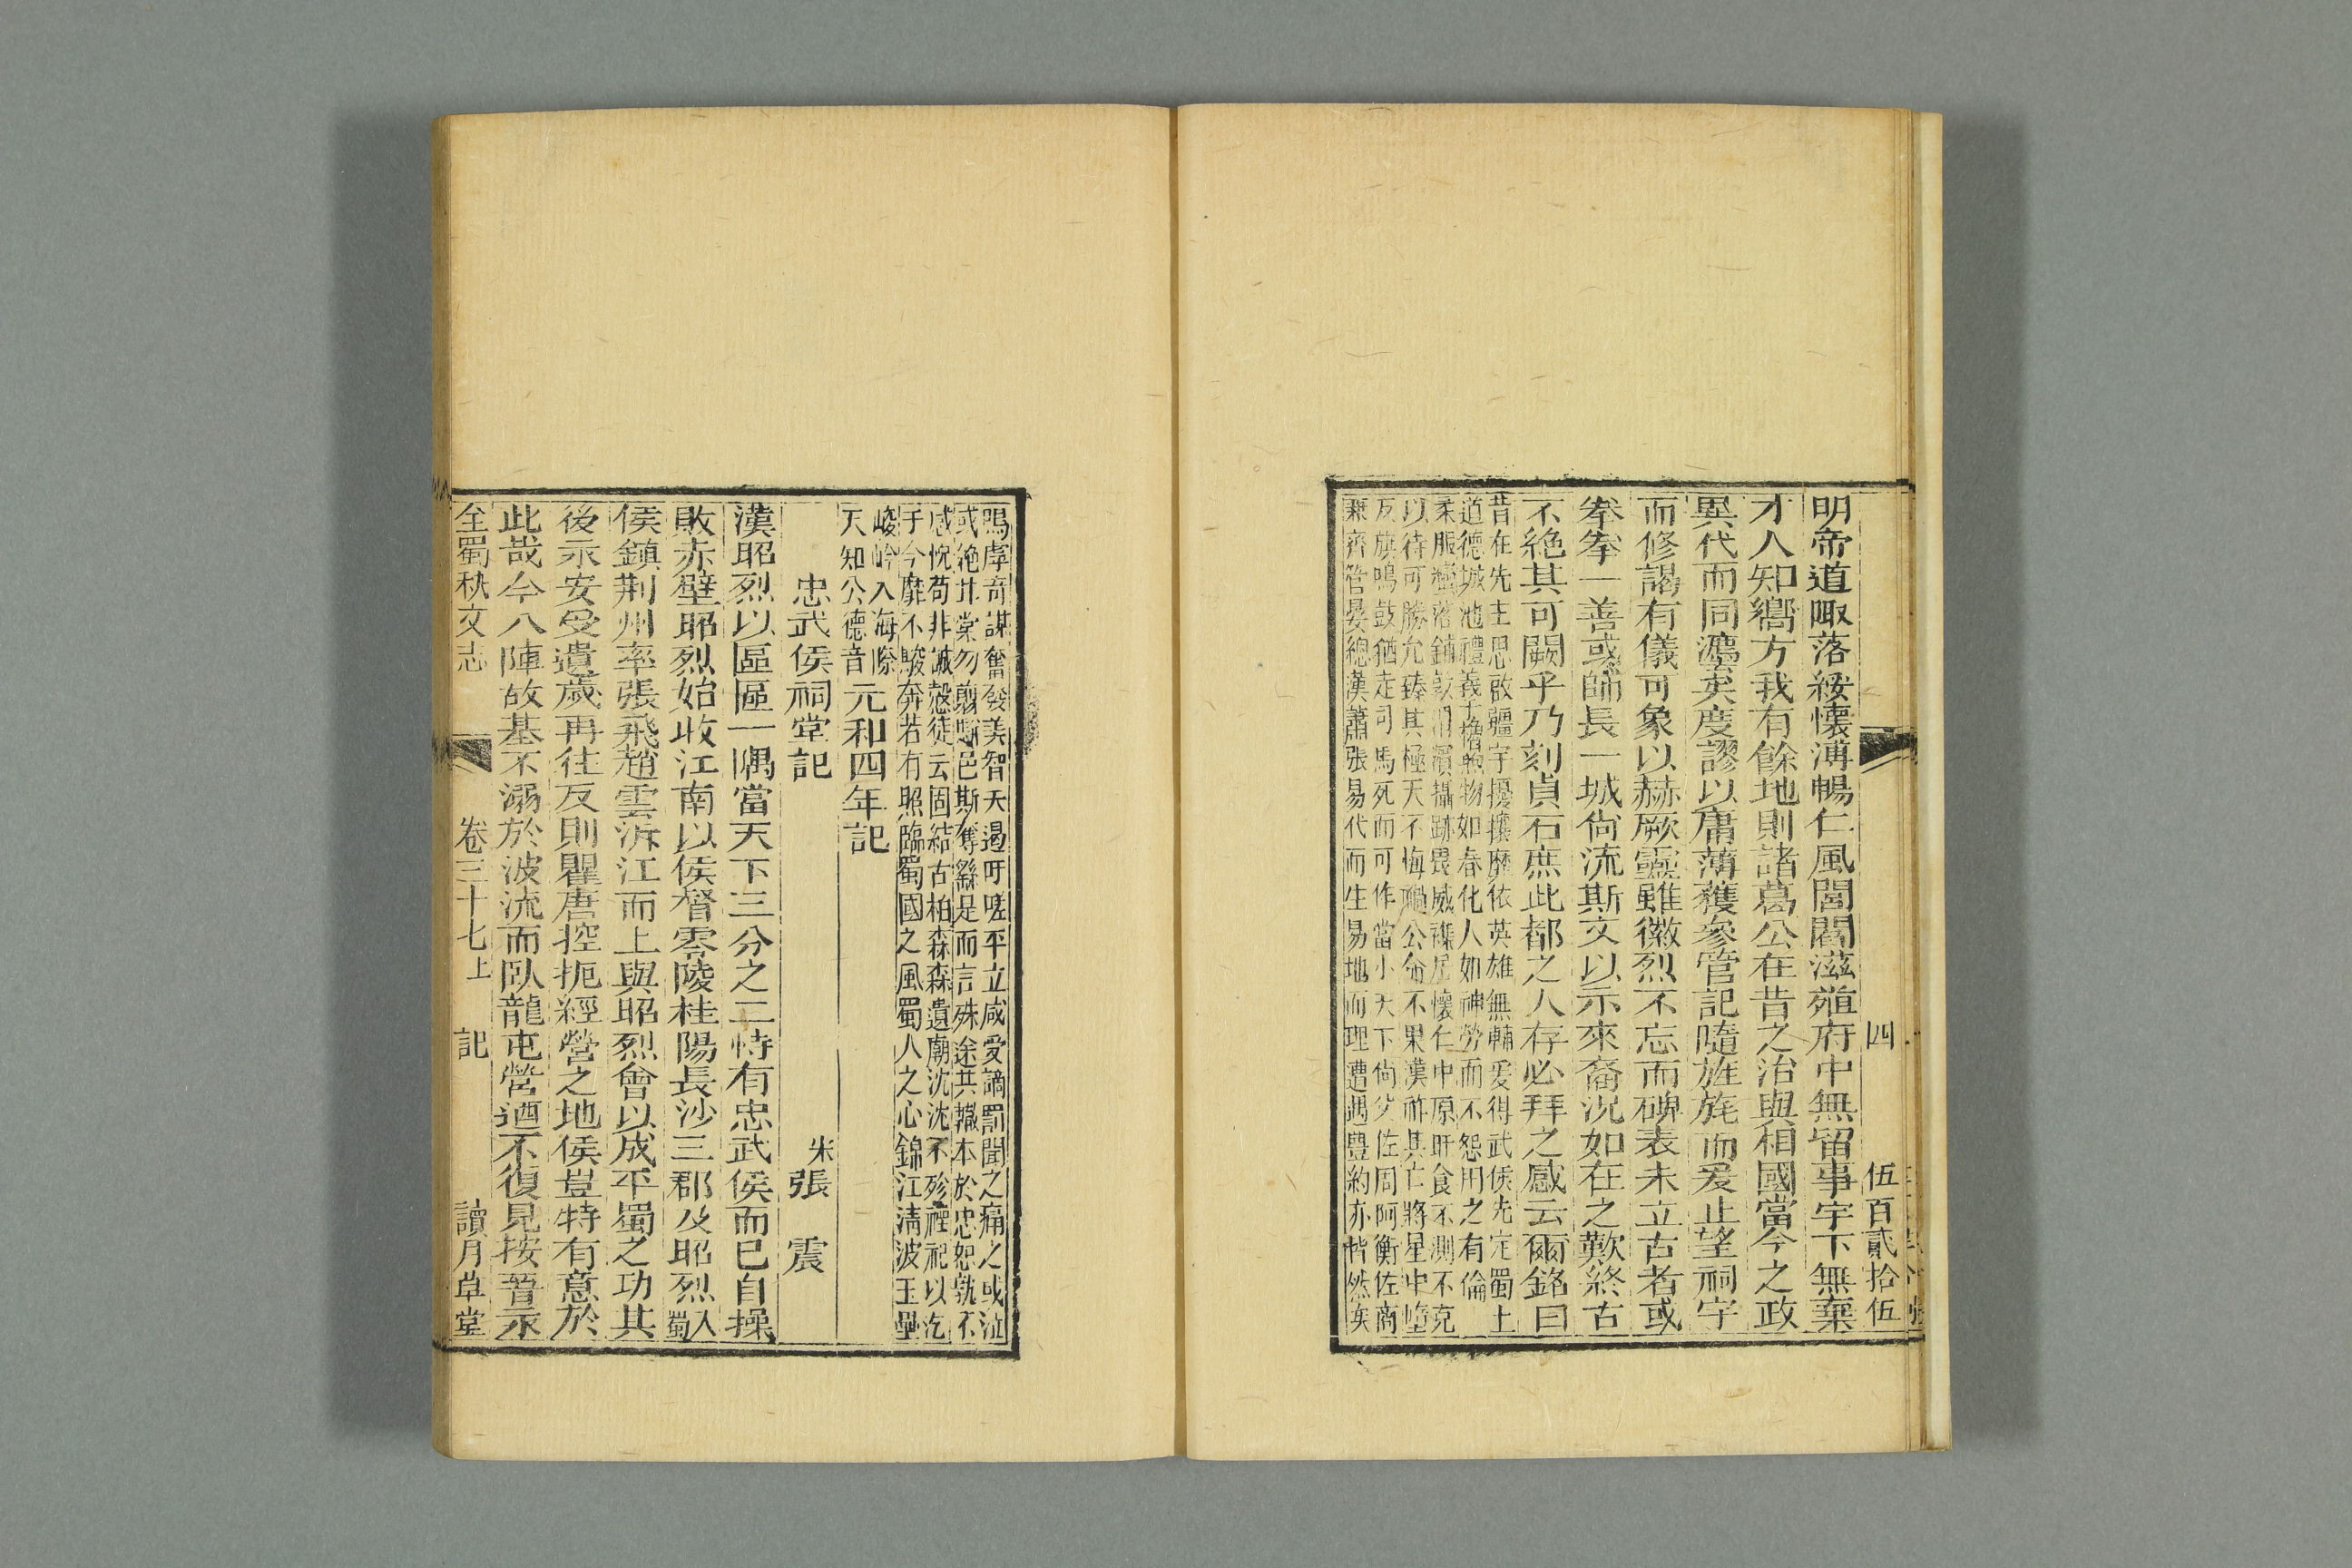 四 伍百貳拾伍
明帝道陬落綏懷溥暢仁風閭閻滋殖府中無留事宇下無棄
才人知嚮方我有餘地則諸葛公在昔之治與相國當今之政
異代而同塵英度謬以庸薄獲參管記隨旌旄而爰止望祠宇
而修謁有儀可象以赫厥靈雖徽烈不忘而碑表未立古者或
拳拳一善或師長一城尙流斯文以示來裔況如在之歎終古
不絶其可闕乎乃刻貞石庶此都之人存必拜之感云爾銘曰
昔在先主思啟疆宇擾攘靡依英雄無輔爰得武侯先定蜀土
道德城池禮義干櫓煦物如春化人如神勞而不怨用之有倫
柔服蠻落鋪敦渭濱攝跡畏威襍居懷仁中原旰食不測不克
以待可勝允臻其極天不悔禍公命不果漢祚其亡將星中墮
反旗鳴鼓猶走司馬死而可作當小天下尙父佐周阿衡佐商
兼齊管晏總漢蕭張易代而生易地而理遭遇豐約亦皆然矣
嗚虖奇謀奮發美智夭遏吁嗟平立咸受謫罰聞之痛之或泣
或絶甘棠勿翦騈邑斯奪繇是而言殊途共轍本於忠恕孰不
感悅苟非誠慤徒云固結古柏森森遺廟沈沈不殄禋祀以迄
于今靡不駿奔若有照臨蜀國之風蜀人之心錦江淸波玉壘
峻岭入海際
天知公德音 元和四年記
忠武侯祠堂記 宋張 震
漢昭烈以區區一隅當天下三分之二恃有忠武侯而已自操
敗赤壁昭烈始收江南以侯督零陵桂陽長沙三郡及昭烈入蜀
侯鎮荆州率張飛趙雲泝江而上與昭烈會以成平蜀之功其
後永安受遺歲再往反則瞿唐控扼經營之地侯豈特有意於
此哉今八陣故基不溺於波流而臥龍屯營迺不復見按晉永
全蜀秇文志 卷三十七上 記 讀月草堂